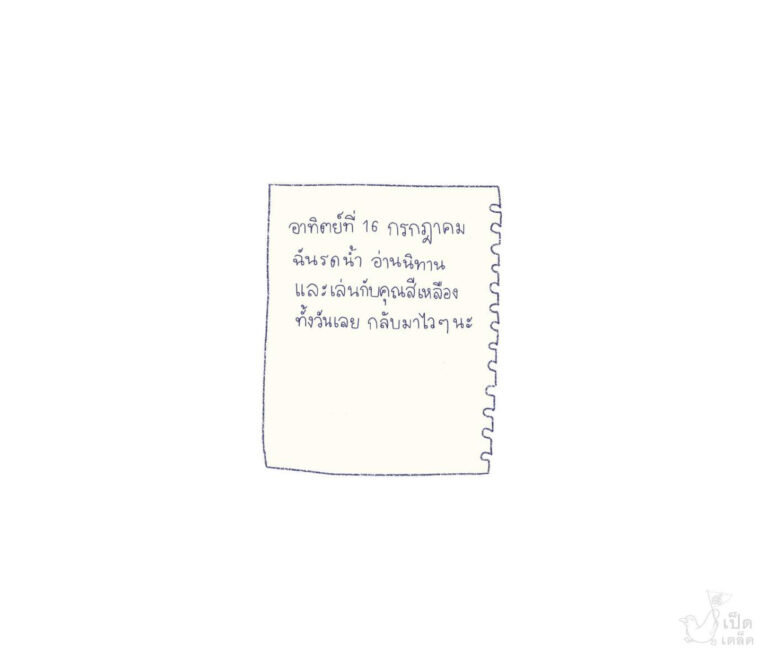 อาทิตย์ที่ 16 กรกฎาคม
ฉันรดน้ำ อ่านนิทาน
และเล่นกับคุณสีเหลือง
ทั้งวันเลย กลับมาไวๆนะ
เป็ด
เตล็ด